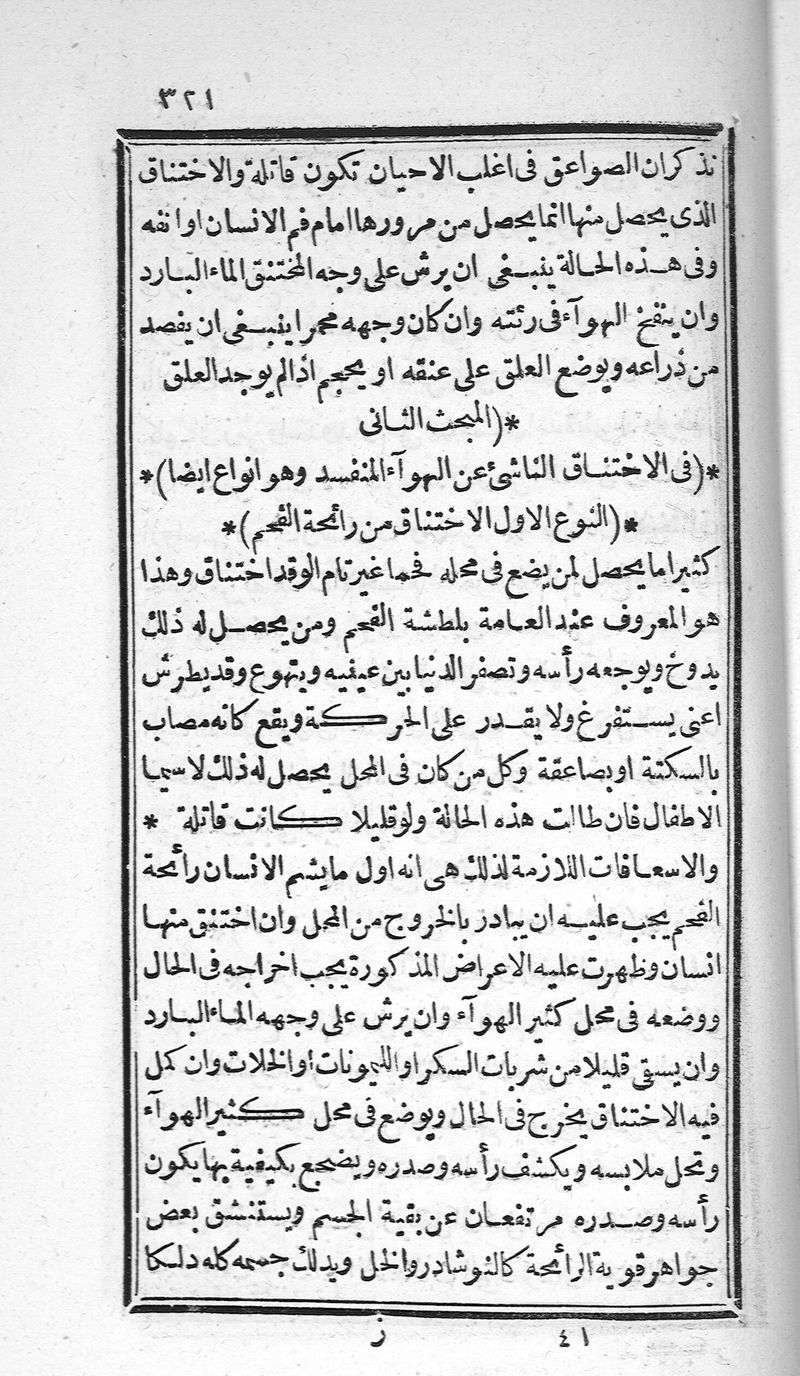 ٣٢١
نذكر ان الصواعق فى اغلب الاحيان تكون قاتلة والاختناق
الذى يحصل منها انما يحصل من مرورها امام فم الانسان او انفه
وفى هذه الحالة ينبغى ان يرش على وجه المختنق الماء البارد
وان ينفخ الهوآء فى رئته وان كان وجهه محمرا ينبغى ان يفصد
من ذراعه ويوضع العلق على عنقه او يحجم اذا لم يوجد العلق
*(المبحث الثانى
*(فى الاختناق الناشئ عن الهوآء المنفسد وهو انواع ايضا)*
*(النوع الاول الاختناق من رائحة الفحم)*
كثيرا ما يحصل لمن يضع فى محله فحما غير تام الوقد اختناق وهذا
هو المعروف عند العامة بلطشة الفحم ومن يحصل له ذلك
يدوخ ويوجعه رأسه وتصفر الدنيا بين عينيه ويتهوع وقد يطرش
اعنى يستفرغ ولا يقدر على الحركة ويقع كانه مصاب
بالسكتة او بصاعقة وكل من كان فى المحل يحصل له ذلك لا سيما
الاطفال فان طالت هذه الحالة ولو قليلا كانت قاتلة *
والاسعافات اللازمة لذلك هى انه اول ما يشم الانسان رائحة
الفحم يجب عليه ان يبادر بالخروج من المحل وان اختنق منها
انسان وظهرت عليه الاعراض المذكورة يجب اخراجه فى الحال
ووضعه فى محل كثير الهوآء وان يرش على وجهه الماء البارد
وان يسقى قليلا من شربات السكر او الليمونات او الخلات وان كمل
فيه الاختناق يخرج فى الحال ويوضع فى محل كثير الهوآء
وتحل ملابسه ويكشف رأسه وصدره ويضجع بكيفية بها يكون
رأسه وصدره مرتفعان عن بقية الجسم ويستنشق بعض
جواهر قوية الرائحة كالنوشادر والخل ويدلك جسمه كله دلكا
٤١ ز